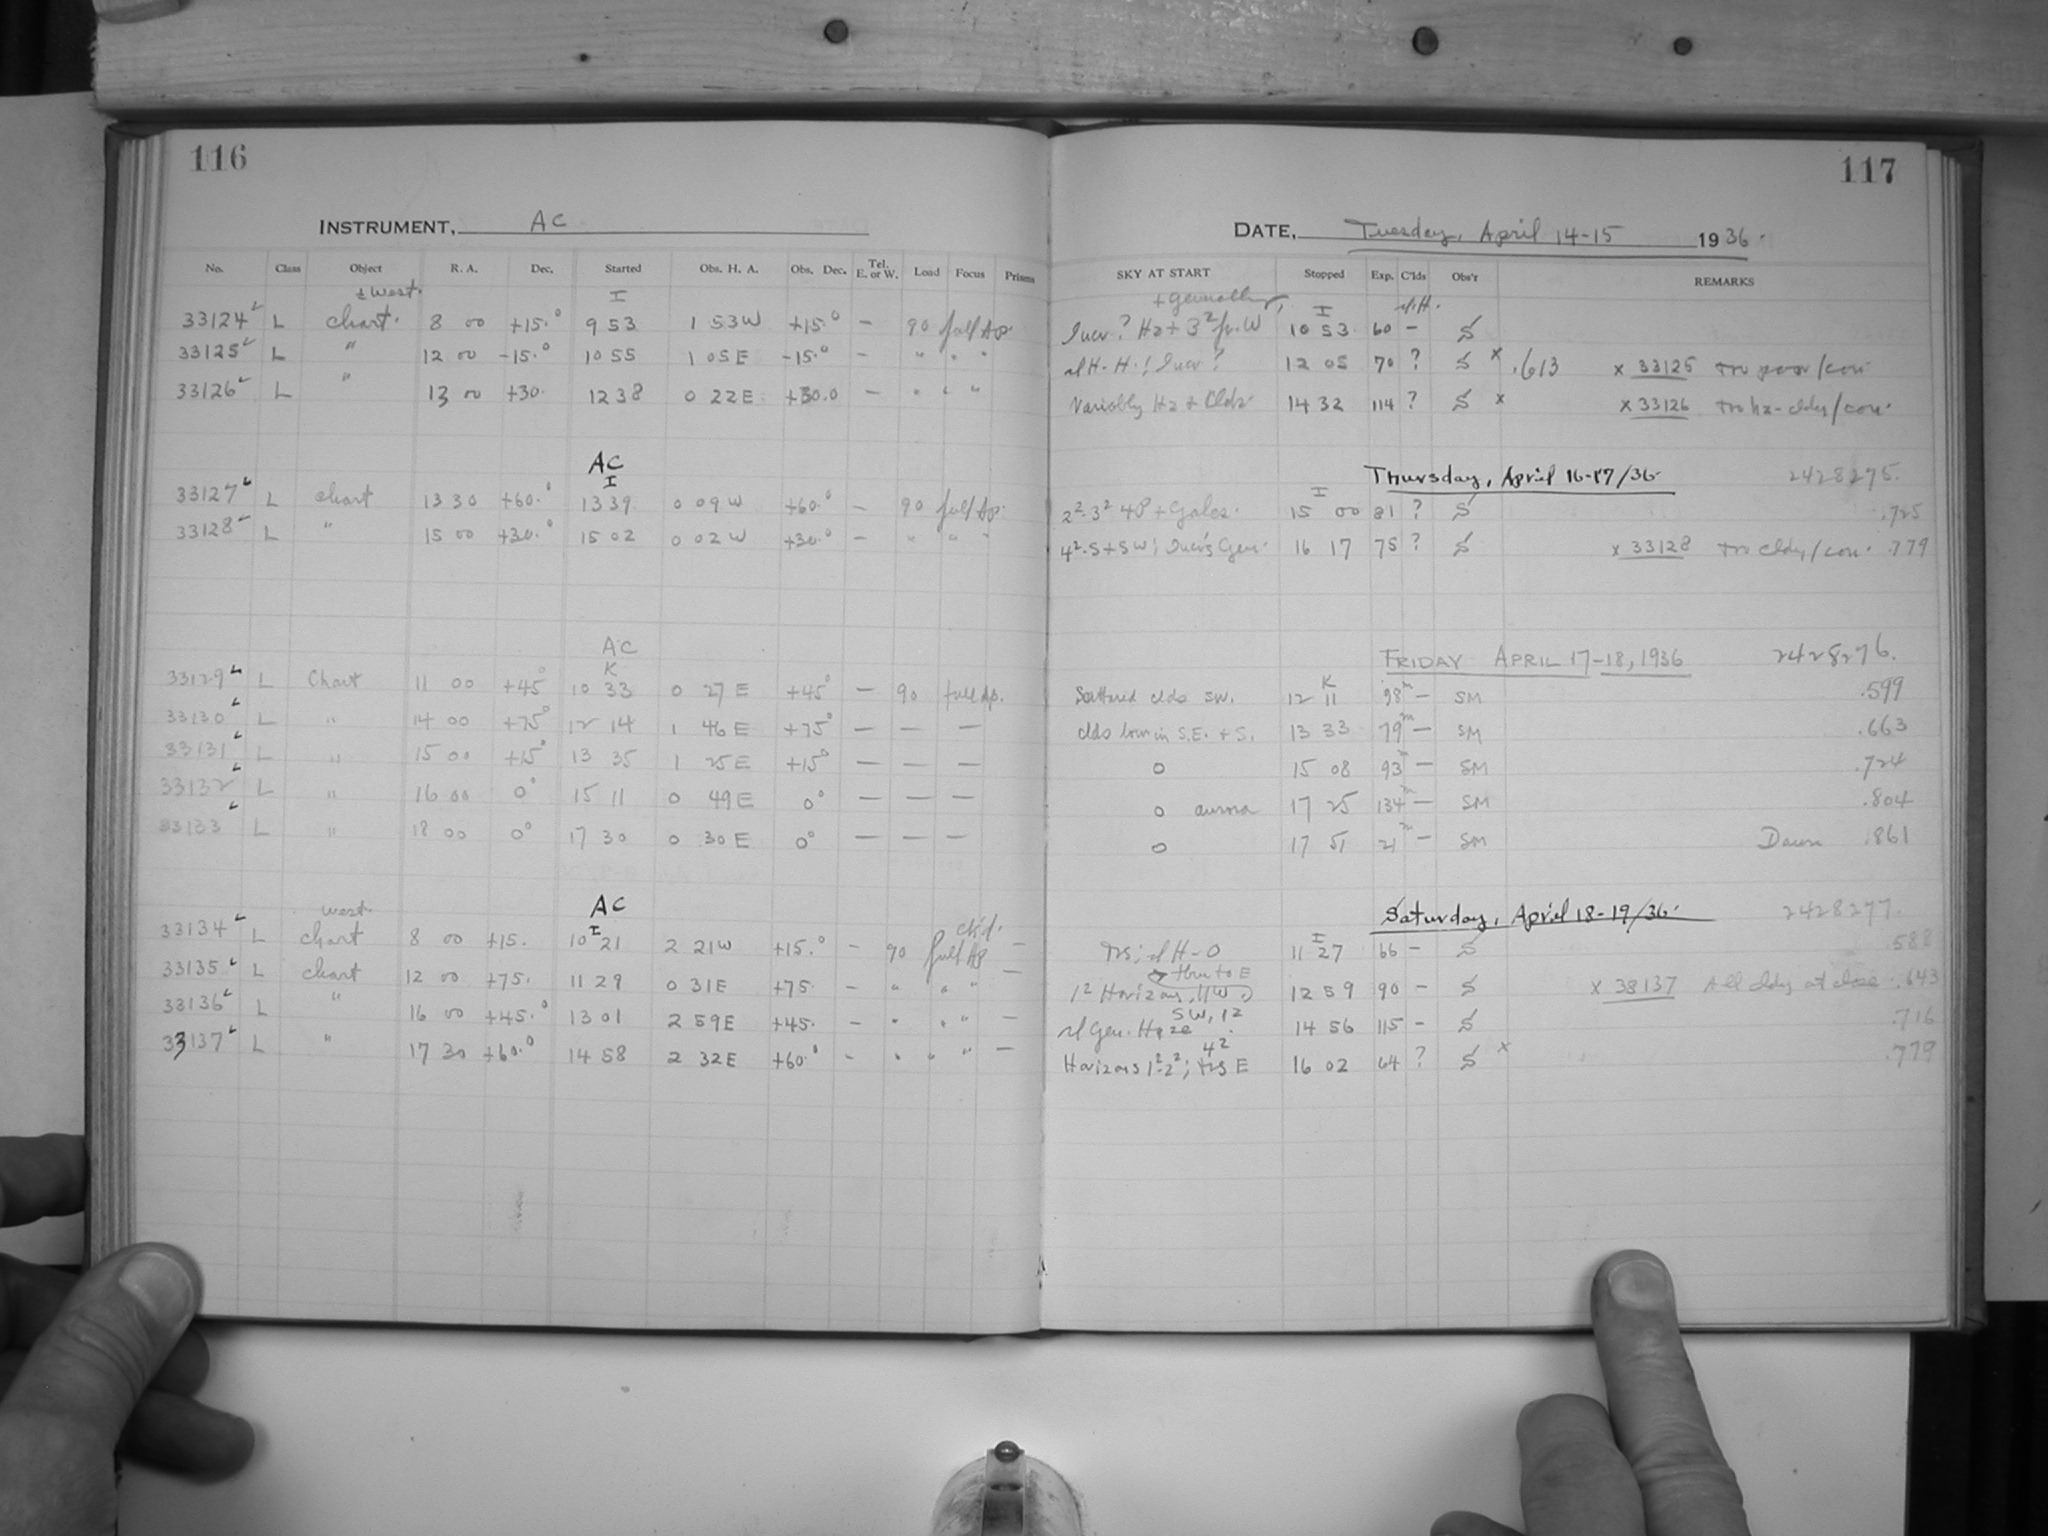 116
INSTRUMENT, AC
No. Class Object R. A. Dec. Started Obs. H. A. Obs. Dec. Tel. E. or W. Load Focus Prisms
± West. I
33124 L chart. 8 00 +15.° 9 53 1 53W +15.° – 90 full Ap.
33125 L " 12 00 -15.° 10 55 1 05E -15.° – " " "
33126 L " 13 00 +30. 12 38 0 22E +30.0 – " " "
AC
I
33127 L chart 13 30 +60.° 13 39 0 09W +60.° – 90 full Ap.
33128 L " 15 00 +30.° 15 02 0 02W +30.° – " " "
AC
K
33129 L Chart 11 00 +45° 10 33 0 27E +45° – 90 full Ap.
33130 L " 14 00 +75° 12 14 1 46E +75° – – –
33131 L " 15 00 +15° 13 35 1 25E +15° – – –
33132 L " 16 00 0° 15 11 0 49E 0° – – –
33133 L " 18 00 0° 17 30 0 30E 0° – – –
AC
west. I ck'd.
33134 L chart 8 00 +15. 10 21 2 21W +15.° – 90 full Ap –
33135 L chart 12 00 +75. 11 29 0 31E +75. – " " " –
33136 L " 16 00 +45.° 13 01 2 59E +45. – " " " –
33137 L " 17 30 +60.° 14 58 2 32E +60.° – " " " –
117
DATE, Tuesday, April 14-15 1936.
SKY AT START Stopped Exp. C'lds Obs'r REMARKS
I
Hz + 3² W 10 53 60 – S
12 05 70 ? S x .613 x 33125 poor/con
Variably Hz + Clds 14 32 114 ? S x x 33126 hz-cldy/con.
Thursday, April 16-17/36. 2428275.
I
2²-3² + Gales. 15 00 81 ? S .725
4²-S+SW; Gen. 16 17 75 ? S x 33128 cldy/con. .779
FRIDAY APRIL 17-18, 1936 2428276.
K
Scattered clds SW. 12 11 98ᵐ – SM .599
clds low in S.E. + S. 13 33 79ᵐ – SM .663
0 15 08 93ᵐ – SM .724
0 aurora 17 25 134ᵐ – SM .804
0 17 51 21ᵐ – SM Dawn .861
Saturday, April 18-19/36. 2428277.
I
H-0 11 27 66 – S .588
thru to E
1² Horizons, 12 59 90 – S x 38137 All cldy at close .643
SW, 12
Gen. Haze 14 56 115 – S .716
42
Horizons 1²-2²; E 16 02 64 ? S x .779